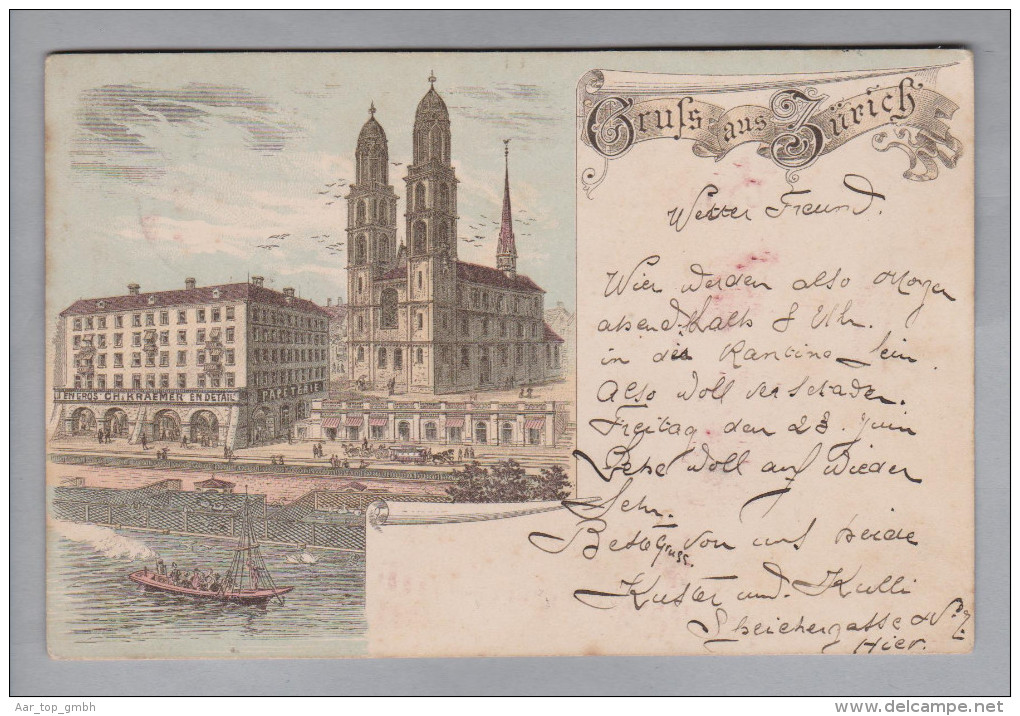 Gruss aus Zürich
Wetter Freund.
Wier werden also Morgen
abend. halb 8 Uhr.
in die Kantine sein
Also woll verschaden.
Freitag den 23. Juin
Lebe woll auf Wieder
Sehn.
Beste Gruss. von uns beide
Kuster und. Kulli
gasse No. 7
Hier.
EN GROS CH. KRAEMER EN DETAIL
PAPETERIE
Aar_top_gmbh
www.delcampe.net